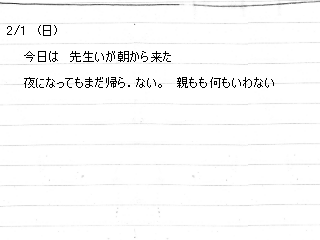 2/1 (日)
今日は 先生いが朝から来た
夜になってもまだ帰ら．ない。 親もも何もいわない